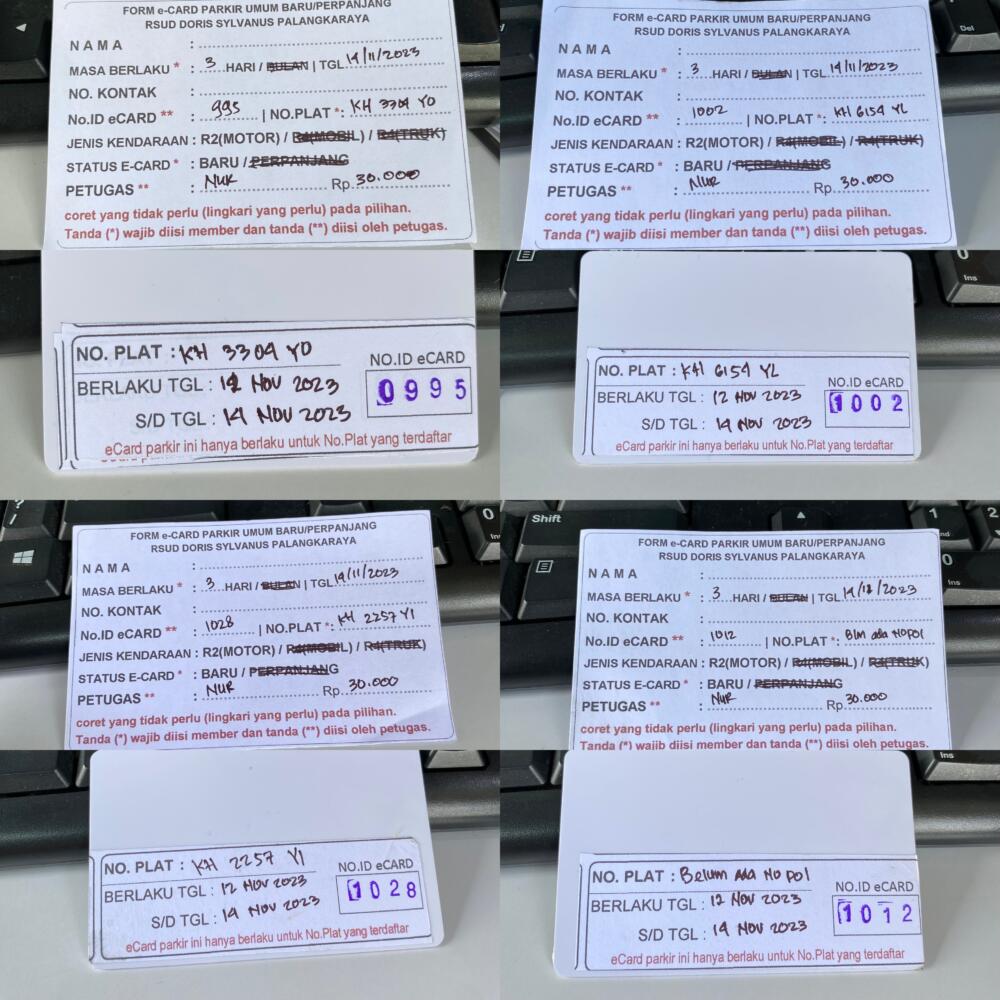 FORM e-CARD PARKIR UMUM BARU/PERPANJANG
RSUD DORIS SYLVANUS PALANGKARAYA
N A M A :
MASA BERLAKU * : 3 HARI / BULAN | TGL 14/11/2023
NO. KONTAK :
No.ID eCARD ** : 995 | NO.PLAT *: KH 3304 YO
JENIS KENDARAAN : R2(MOTOR) / R4(MOBIL) / R4(TRUK)
STATUS E-CARD * : BARU / PERPANJANG
PETUGAS ** : NUR Rp. 30.000
coret yang tidak perlu (lingkari yang perlu) pada pilihan.
Tanda (*) wajib diisi member dan tanda (**) diisi oleh petugas.
FORM e-CARD PARKIR UMUM BARU/PERPANJANG
RSUD DORIS SYLVANUS PALANGKARAYA
N A M A :
MASA BERLAKU * : 3 HARI / BULAN | TGL 14/11/2023
NO. KONTAK :
No.ID eCARD ** : 1002 | NO.PLAT *: KH 6154 YL
JENIS KENDARAAN : R2(MOTOR) / R4(MOBIL) / R4(TRUK)
STATUS E-CARD * : BARU / PERPANJANG
PETUGAS ** : NUR Rp. 30.000
coret yang tidak perlu (lingkari yang perlu) pada pilihan.
Tanda (*) wajib diisi member dan tanda (**) diisi oleh petugas.
Del
NO. PLAT : KH 3304 YO
BERLAKU TGL : 12 NOV 2023
S/D TGL : 14 NOV 2023
NO.ID eCARD
0995
eCard parkir ini hanya berlaku untuk No.Plat yang terdaftar
NO. PLAT : KH 6154 YL
BERLAKU TGL : 12 NOV 2023
S/D TGL : 14 NOV 2023
NO.ID eCARD
1002
eCard parkir ini hanya berlaku untuk No.Plat yang terdaftar
0
Ins
FORM e-CARD PARKIR UMUM BARU/PERPANJANG
RSUD DORIS SYLVANUS PALANGKARAYA
N A M A :
MASA BERLAKU * : 3 HARI / BULAN | TGL 14/11/2023
NO. KONTAK :
No.ID eCARD ** : 1028 | NO.PLAT *: KH 2257 YI
JENIS KENDARAAN : R2(MOTOR) / R4(MOBIL) / R4(TRUK)
STATUS E-CARD * : BARU / PERPANJANG
PETUGAS ** : NUR Rp. 30.000
coret yang tidak perlu (lingkari yang perlu) pada pilihan.
Tanda (*) wajib diisi member dan tanda (**) diisi oleh petugas.
? /
0
Shift
FORM e-CARD PARKIR UMUM BARU/PERPANJANG
RSUD DORIS SYLVANUS PALANGKARAYA
N A M A :
MASA BERLAKU * : 3 HARI / BULAN | TGL 14/12/2023
NO. KONTAK :
No.ID eCARD ** : 1012 | NO.PLAT *: Blm ada NOPOl
JENIS KENDARAAN : R2(MOTOR) / R4(MOBIL) / R4(TRUK)
STATUS E-CARD * : BARU / PERPANJANG
PETUGAS ** : NUR Rp. 30.000
coret yang tidak perlu (lingkari yang perlu) pada pilihan.
Tanda (*) wajib diisi member dan tanda (**) diisi oleh petugas.
0
Ins
NO. PLAT : KH 2257 YI
BERLAKU TGL : 12 NOV 2023
S/D TGL : 14 NOV 2023
NO.ID eCARD
1028
eCard parkir ini hanya berlaku untuk No.Plat yang terdaftar
NO. PLAT : Belum Ada No pol
BERLAKU TGL : 12 NOV 2023
S/D TGL : 14 NOV 2023
NO.ID eCARD
1012
eCard parkir ini hanya berlaku untuk No.Plat yang terdaftar
Ins